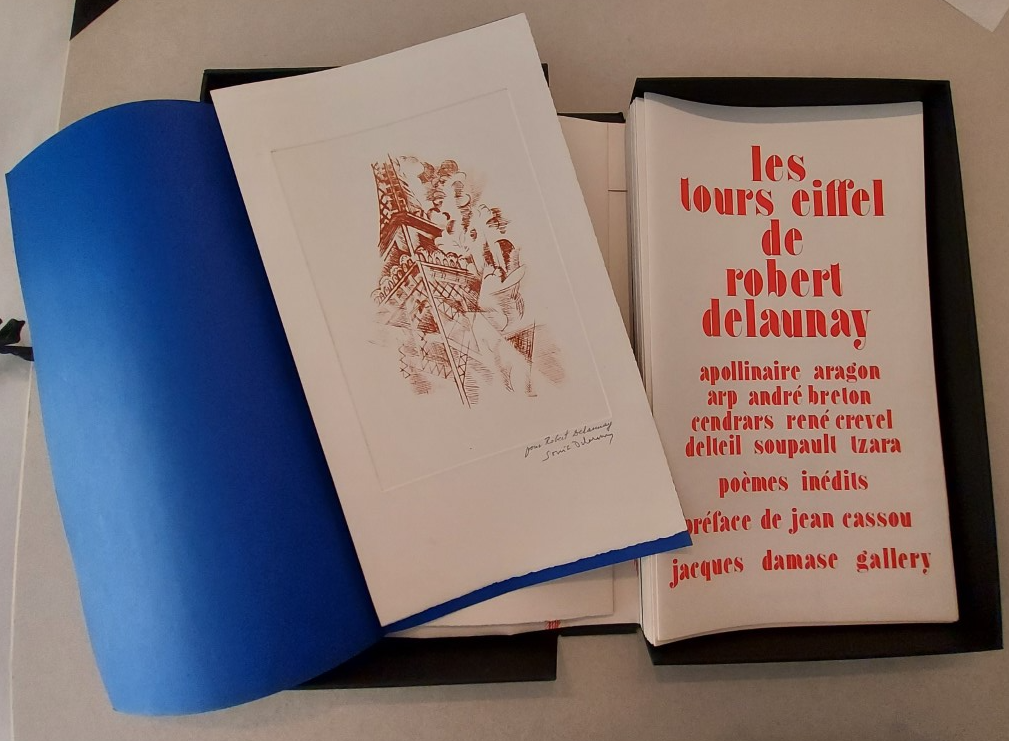 pour Robert Delaunay
Sonia Delaunay
les
tours eiffel
de
robert
delaunay
apollinaire aragon
arp andré breton
cendrars rené crevel
delteil soupault tzara
poèmes inédits
préface de jean cassou
jacques damase gallery